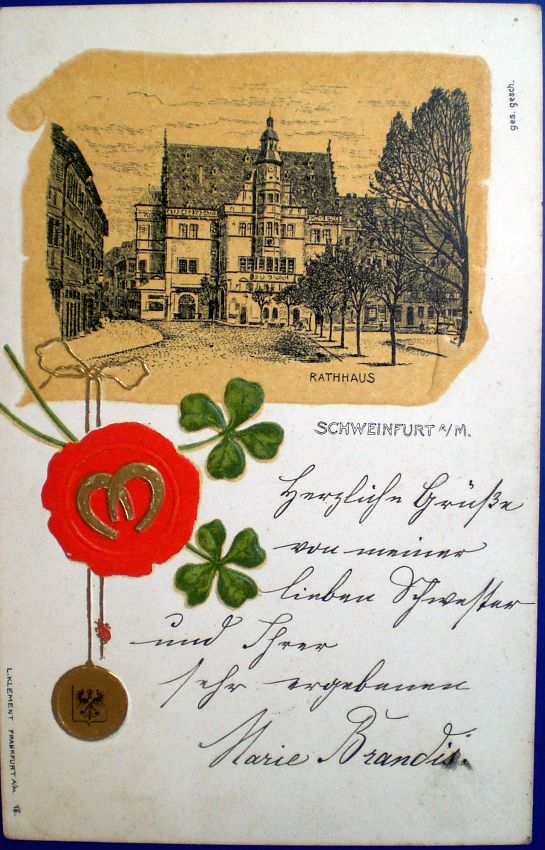 ges. gesch.
RATHHAUS
SCHWEINFURT A/M.
Herzliche Grüße
von meiner
lieben Schwester
und Ihrer
sehr ergebenen
Marie Brandis.
L. KLEMENT FRANKFURT A/M. 16.